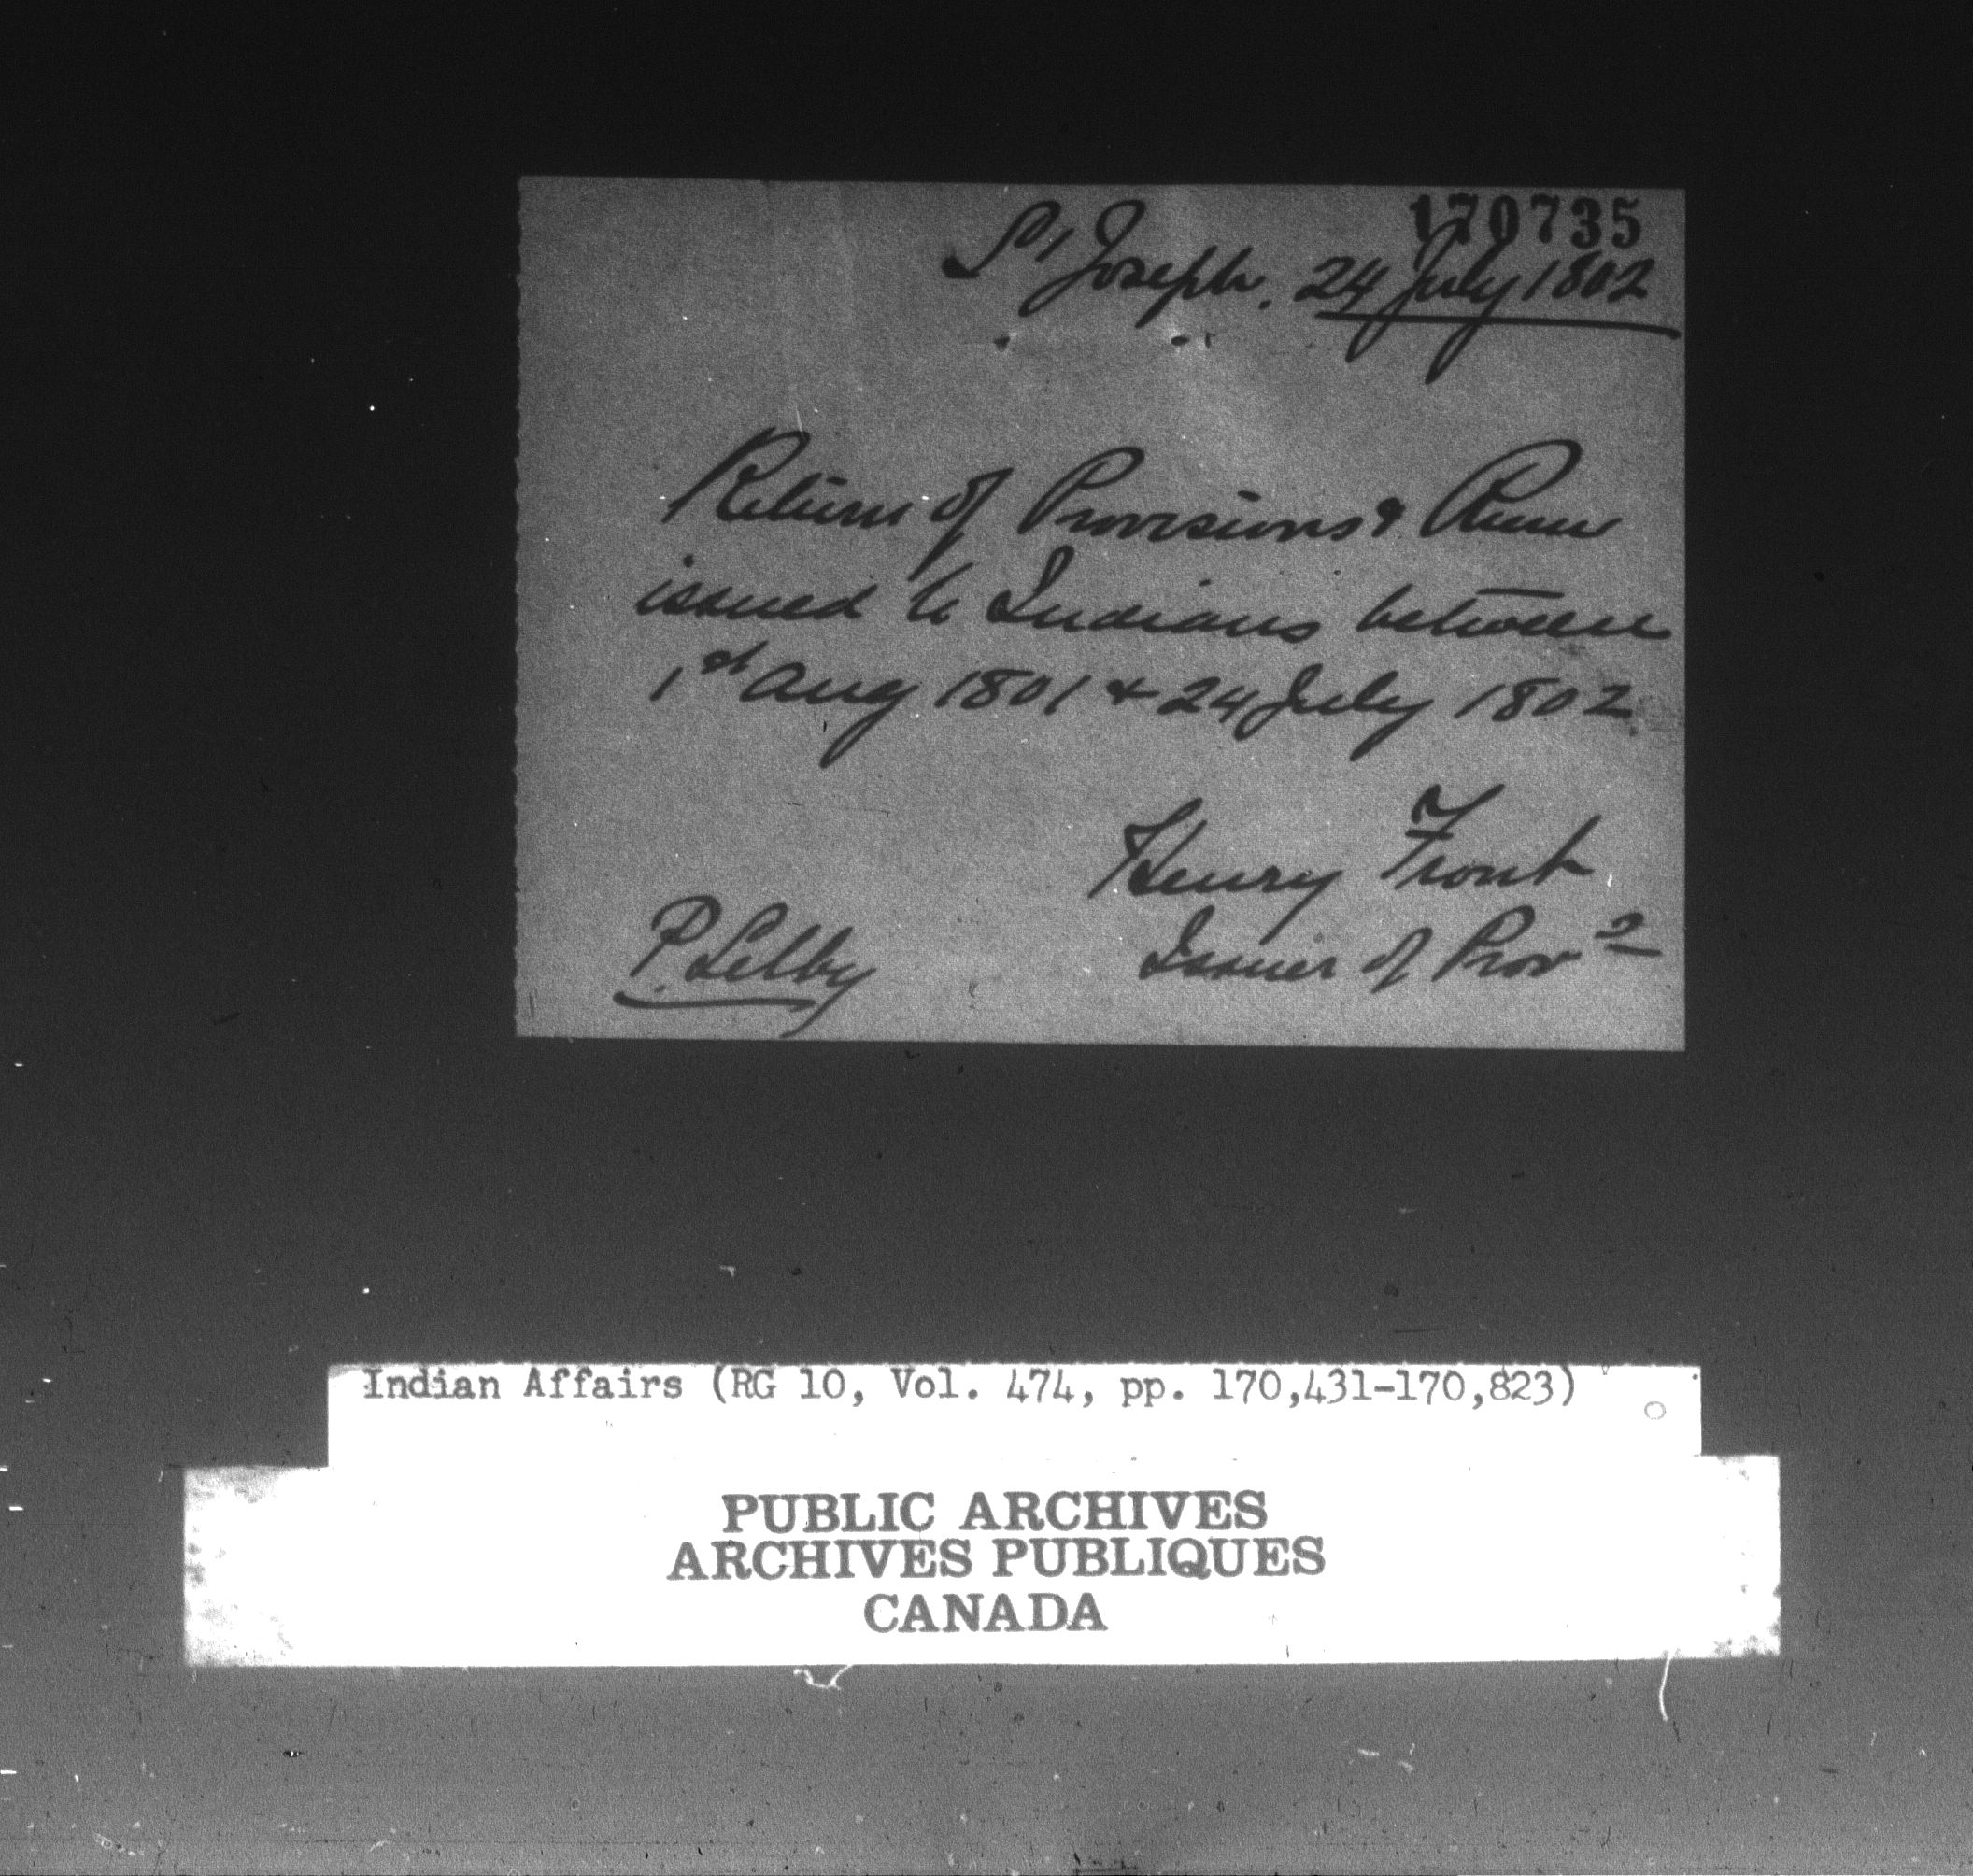 170735
St Joseph. 24 July 1802
Return of Provisions & Rum
issued to Indians between
1st Aug 1801 & 24 July 1802
Henry Front
P. Selby
Issuer of Provs
Indian Affairs (RG 10, Vol. 474, pp. 170,431-170,823)
PUBLIC ARCHIVES
ARCHIVES PUBLIQUES
CANADA